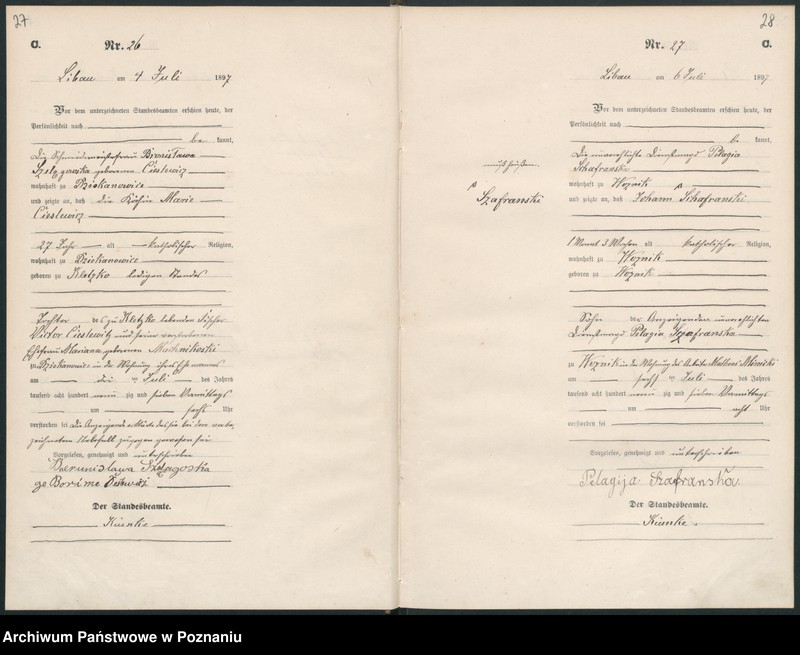 27
C. Nr. 26
Libau am 4 Juli 1897
Vor dem unterzeichneten Standesbeamten erschien heute, der
Persönlichkeit nach
be kannt,
die Schmiedemeisterfrau Bronisława
geborene Cieslewicz
wohnhaft zu Dziekanowice
und zeigte an, daß die Köchin Marie
Cieslewicz
27 Jahr alt katholischer Religion,
wohnhaft zu Dziekanowice
geboren zu Kletzko ledigen Standes
Tochter des zu Kletzko lebenden Fischer
Victor Cieslewitz und seiner verstorbenen
Ehefrau Marianna geborenen
zu Dziekanowice in der Wohnung ihres Ehemannes
am drei ten Juli des Jahres
tausend acht hundert neun zig und sieben Vormittags
um sechs Uhr
verstorben sei die Anzeigende erklärte daß sie bei dem vorbe
zeichneten Sterbefall zugegen gewesen sei
Vorgelesen, genehmigt und unterschrieben
Berunislawa
Der Standesbeamte.
Kümke
28
Nr. 27 C.
Libau am 6 Juli 1897
Vor dem unterzeichneten Standesbeamten erschien heute, der
Persönlichkeit nach
be kannt,
die unverehelichte Dienstmagd Pelagia
Schafranska
wohnhaft zu Woznik
und zeigte an, daß Johann Schafranski
1 Monat 3 Wochen alt katholischer Religion,
wohnhaft zu Woznik
geboren zu Woznik
Sohn der Anzeigenden unverehelichten
Dienstmagd Pelagia Szafranska
zu Woznik in der Wohnung des
am sechs ten Juli des Jahres
tausend acht hundert neun zig und sieben Vormittags
um acht Uhr
verstorben sei
Vorgelesen, genehmigt und unterschrieben
Pelagija Szafranska.
Der Standesbeamte.
Kümke.
Szafranski
Archiwum Państwowe w Poznaniu